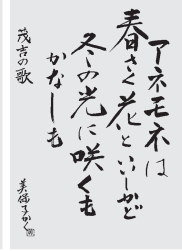 アネモネは
春さく花といいしかど
冬の光に咲くも
かなしも
茂吉の歌
美保子かく